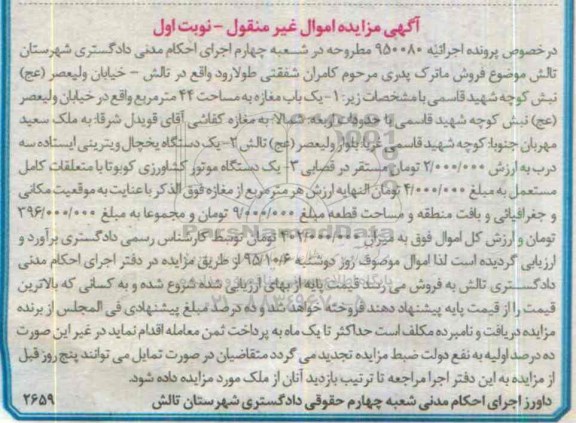 آگهی مزایده اموال غیر منقول - نوبت اول
در خصوص پرونده اجرائیه ۹۵۰۰۸۰ مطروحه در شعبه چهارم اجرای احکام مدنی دادگستری شهرستان
تالش موضوع فروش ماترک پدری مرحوم کامران شفقتی طولارود واقع در تالش - خیابان ولیعصر (عج)
نبش کوچه شهید قاسمی با مشخصات زیر: ۱- یک باب مغازه به مساحت ۴۴ متر مربع واقع در خیابان ولیعصر
(عج) نبش کوچه شهید قاسمی با حدود اربعه: شمالا: به مغازه کفاشی آقای قویدل شرقا: به ملک سعید
مهربان جنوبا: کوچه شهید قاسمی غربا: بلوار ولیعصر (عج) تالش ۲- یک دستگاه یخچال ویترینی ایستاده سه
درب به ارزش ۲/۰۰۰/۰۰۰ تومان مستقر در قصابی ۳- یک دستگاه موتور کشاورزی کوبوتا با متعلقات کامل
مستعمل به مبلغ ۴/۰۰۰/۰۰۰ تومان النهایه ارزش هر متر مربع از مغازه فوق الذکر با عنایت به موقعیت مکانی
و جغرافیائی و بافت منطقه و مساحت قطعه مبلغ ۹/۰۰۰/۰۰۰ تومان و مجموعا به مبلغ ۳۹۶/۰۰۰/۰۰۰
تومان و ارزش کل اموال فوق به میزان ۴۰۲/۰۰۰/۰۰۰ تومان توسط کارشناس رسمی دادگستری برآورد و
ارزیابی گردیده است لذا اموال موصوف روز دوشنبه ۹۵/۱۰/۶ از طریق مزایده در دفتر اجرای احکام مدنی
دادگستری تالش به فروش می رسد قیمت پایه از بهای ارزیابی شده شروع شده و به کسانی که بالاترین
قیمت را از قیمت پایه پیشنهاد دهند فروخته خواهد شد و ده درصد مبلغ پیشنهادی فی المجلس از برنده
مزایده دریافت و نامبرده مکلف است حداکثر تا یک ماه به پرداخت ثمن معامله اقدام نماید در غیر این صورت
ده درصد اولیه به نفع دولت ضبط مزایده تجدید می گردد متقاضیان در صورت تمایل می توانند پنج روز قبل
از مزایده به این دفتر اجرا مراجعه تا ترتیب بازدید آنان از ملک مورد مزایده داده شود.
دادورز اجرای احکام مدنی شعبه چهارم حقوقی دادگستری شهرستان تالش ۲۶۵۹